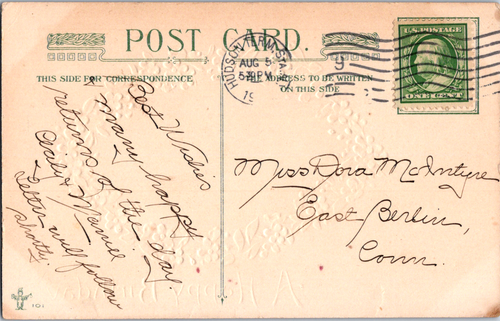 POST CARD.
THIS SIDE FOR CORRESPONDENCE
THE ADDRESS TO BE WRITTEN
ON THIS SIDE
HUDSON TERM. STA.
AUG 5
5 30 PM
19
U.S. POSTAGE
Best Wishes
& many happy
returns of the day.
Cecily & Mamie
Letter will follow
shortly.
Miss Dora McIntyre
East Berlin,
Conn.
A Happy Birthday
101